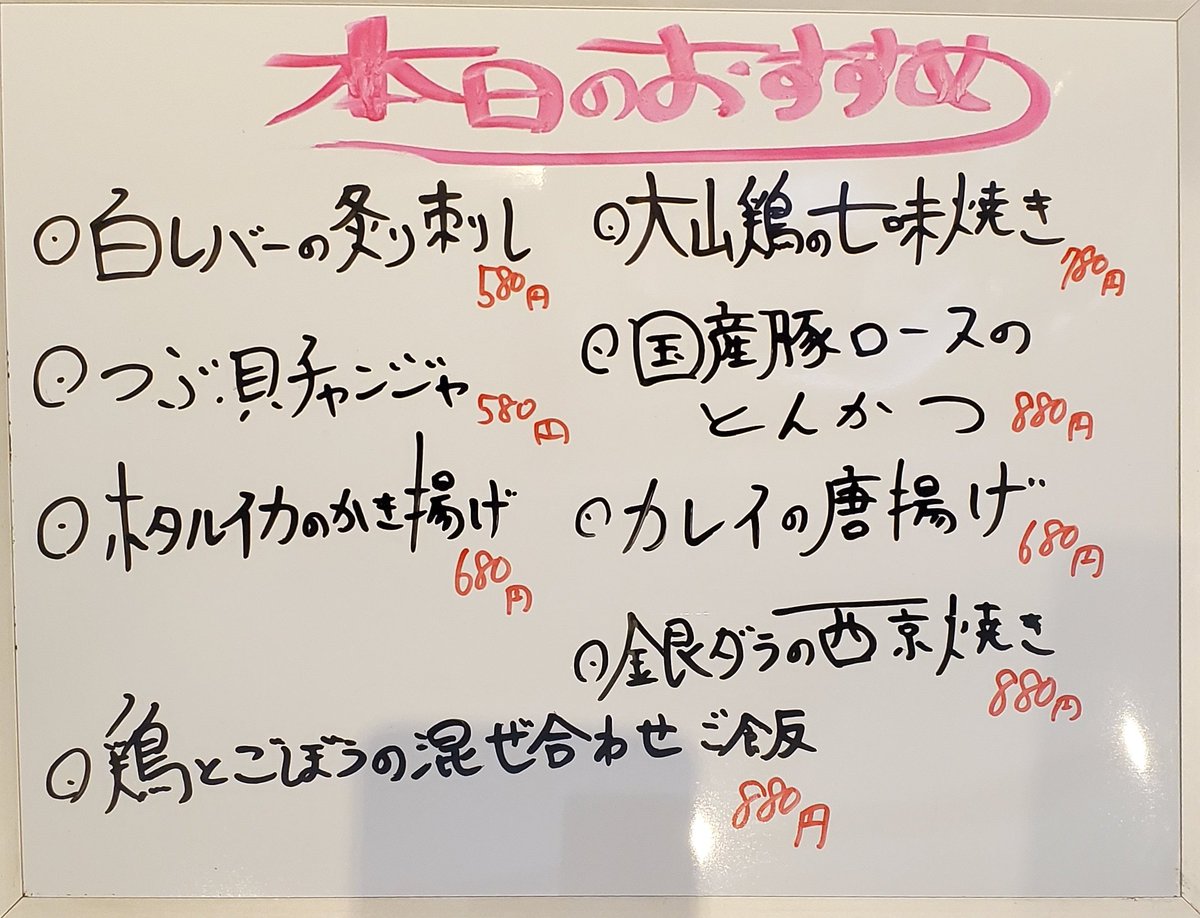 本日のおすすめ
⦿白レバーの炙り刺し
580円
⦿つぶ貝チャンジャ
580円
⦿ホタルイカのかき揚げ
680円
⦿大山鶏の七味焼き
780円
⦿国産豚ロースの
とんかつ 880円
⦿カレイの唐揚げ
680円
⦿銀ダラの西京焼き
880円
⦿鶏とごぼうの混ぜ合わせご飯
880円